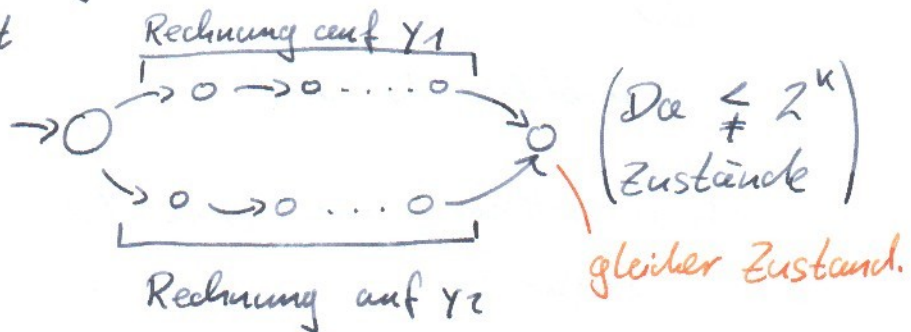 t
Rechnung auf y1
(Da ≨ 2^k
Zustände)
gleicher Zustand.
Rechnung auf y2